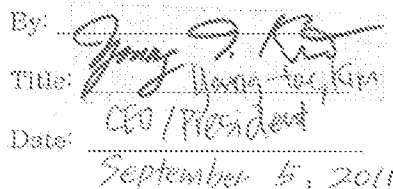 By:
Title: Kim
CEO / President
Date:
September 5, 2011